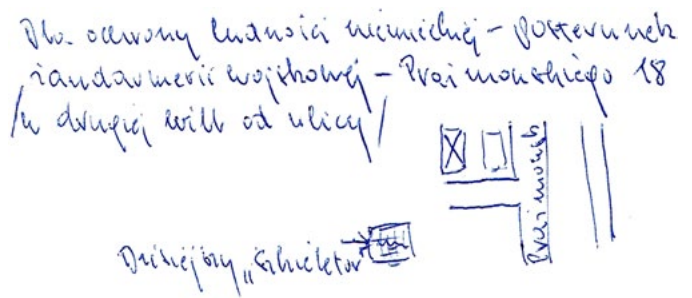 Dla ochrony ludności niemieckiej – posterunek
żandarmerii wojskowej – Prażmowskiego 18
/w drugiej willi od ulicy/
Prażmowsk
Dzisiejszy „Szkieletor"